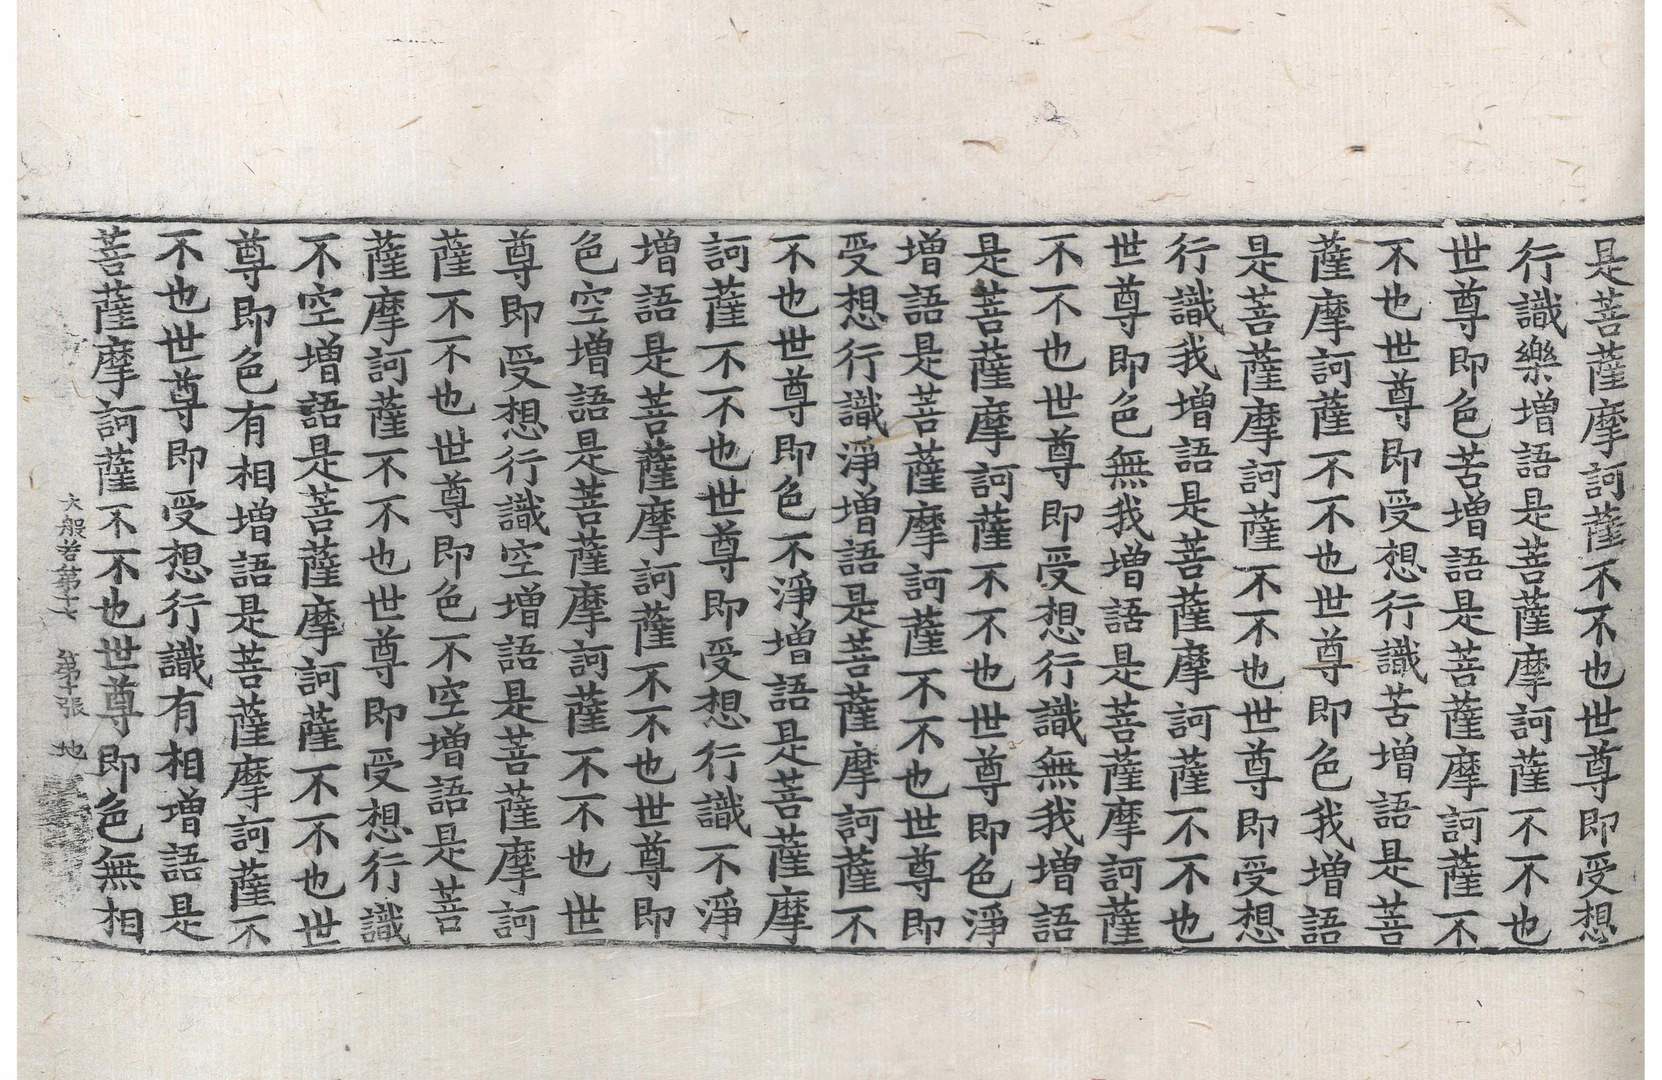 是菩薩摩訶薩不不也世尊即受想
行識樂增語是菩薩摩訶薩不不也
世尊即色苦增語是菩薩摩訶薩不
不也世尊即受想行識苦增語是菩
薩摩訶薩不不也世尊即色我增語
是菩薩摩訶薩不不也世尊即受想
行識我增語是菩薩摩訶薩不不也
世尊即色無我增語是菩薩摩訶薩
不不也世尊即受想行識無我增語
是菩薩摩訶薩不不也世尊即色淨
增語是菩薩摩訶薩不不也世尊即
受想行識淨增語是菩薩摩訶薩不
不也世尊即色不淨增語是菩薩摩
訶薩不不也世尊即受想行識不淨
增語是菩薩摩訶薩不不也世尊即
色空增語是菩薩摩訶薩不不也世
尊即受想行識空增語是菩薩摩訶
薩不不也世尊即色不空增語是菩
薩摩訶薩不不也世尊即受想行識
不空增語是菩薩摩訶薩不不也世
尊即色有相增語是菩薩摩訶薩不
不也世尊即受想行識有相增語是
菩薩摩訶薩不不也世尊即色無相
大般若第十七 第十張 地